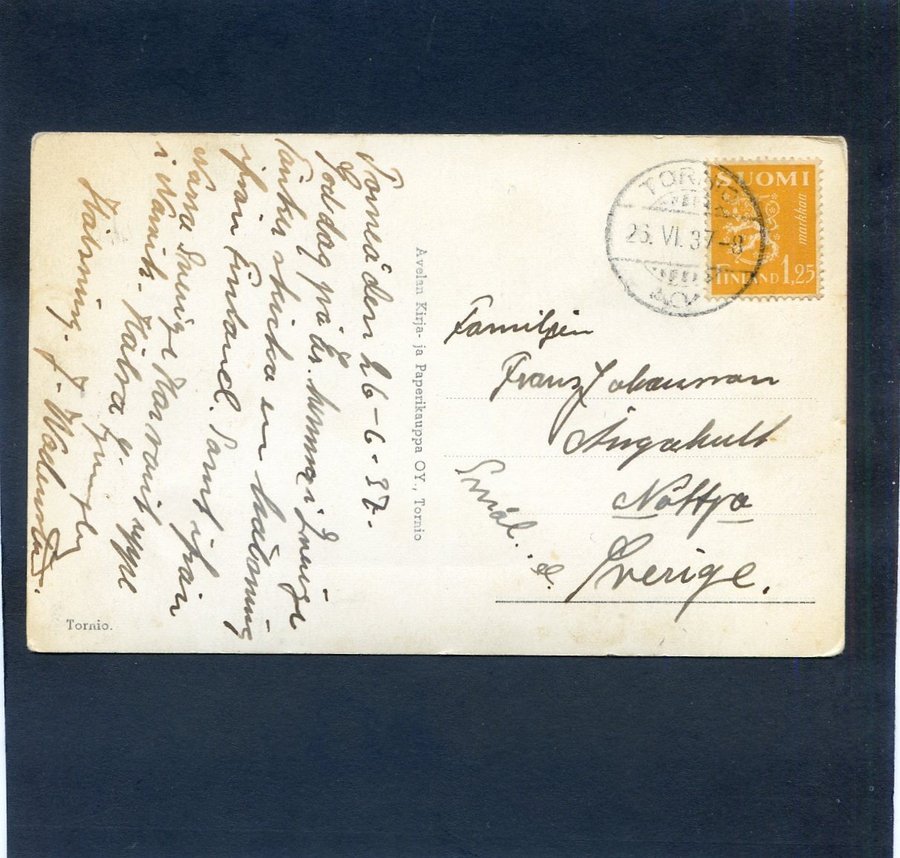 Torneå den 26-6-37.
God dag på Er. kommer i Sverige
tänker skicka en hälsning
ifrån Finland. Samt ifrån
Norra Sverige Har varit uppe
i Hälsa
Hälsning. J.
Tornio.
Avelan Kirja- ja Paperikauppa OY., Tornio
TORNIO
26. VI. 37-8
SUOMI
markkaa
FINLAND 1,25
Familjen
Franz Johansson
Ängakult
Nöttja
Smål..d.
Sverige.